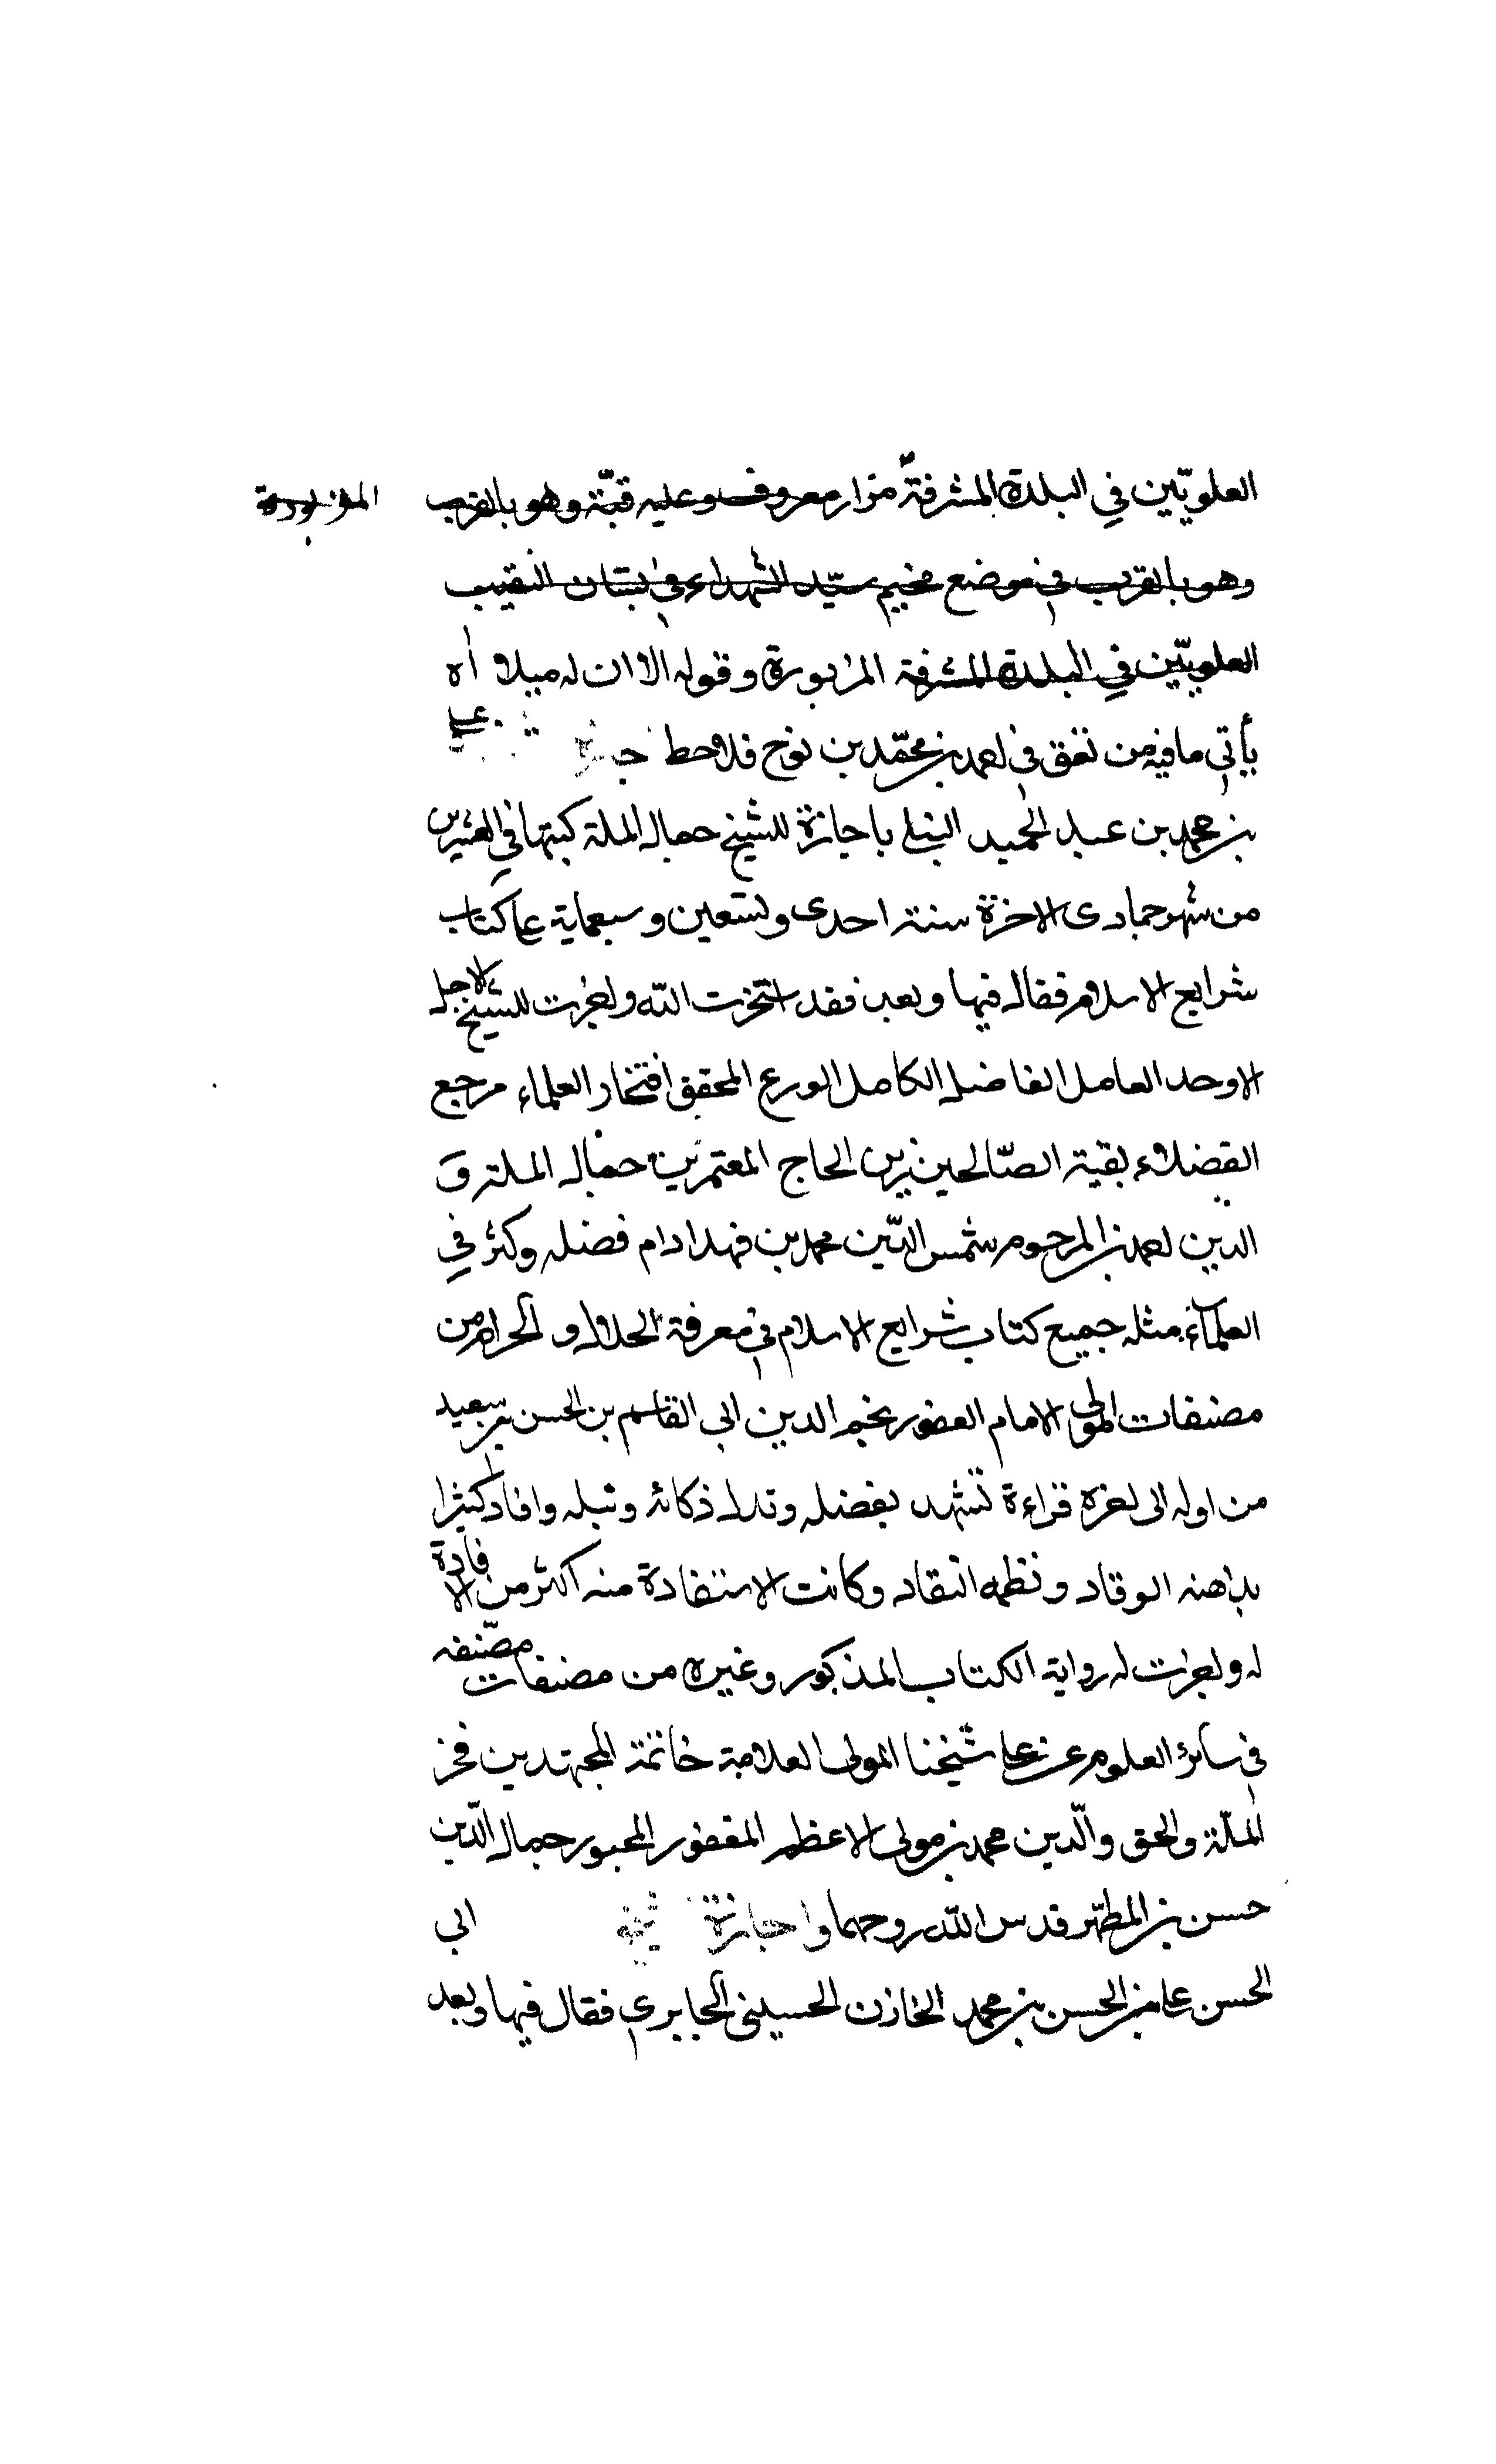 العلويّين في البلدة المشرفة مزار معروف وعليه قبّة وهو بالقرب المزبورة
وهو بالقرب في موضع مخيم سيّد الشهداء في بستان النقيب
العلويّين في البلدة المشرفة المزبورة وقوله الا ان له ميلا اه
يأتي ما فيه من تفق في احمد بن محمّد بن نوح فلاحظ علي
بن محمد بن عبد الحميد النيلي باجازة للشيخ جمال الملة كتبها في العشرين
من شهر جمادى الاخرة سنة احدى وتسعين وسبعماية على كتاب
شرايع الاسلام فقال فيها وبعد فقد استخرت الله واجزت للشيخ الاجل
الاوحد العامل الفاضل الكامل الورع المحقق افتخار العلماء مرجع
الفضلاء بقية الصّالحين زين الحاج المعتمرين جمال الملة و
الدين احمد بن المرحوم شمس الدّين محمد بن فهد ادام فضله وكثر في
العلماء مثله جميع كتاب شرايع الاسلام في معرفة الحلال والحرام من
مصنفات المولى الامام الغفور نجم الدين ابي القاسم بن الحسن بن سعيد
من اوله الى اخره قراءة تشهد بفضله وتدل ذكائه ونبله وافاد كثيرا
بذهنه الوقاد ونظمه النقاد وكانت الاستفادة منه اكثر من الافادة
له واجزت له رواية الكتاب المذكور وغيره من مصنفات مصنّفه
في سائر العلوم عني عن شيخنا المولى العلامة خاتمة المجتهدين فخر
الملّة والحق والّدين محمد بن مولى الاعظم المغفور المحبور جمال الدّين
حسن بن المطهّر قدس الله روحهما واجازة ابي
الحسن علي بن الحسن بن محمد الخازن الحسيني الجابري فقال فيها وبعد